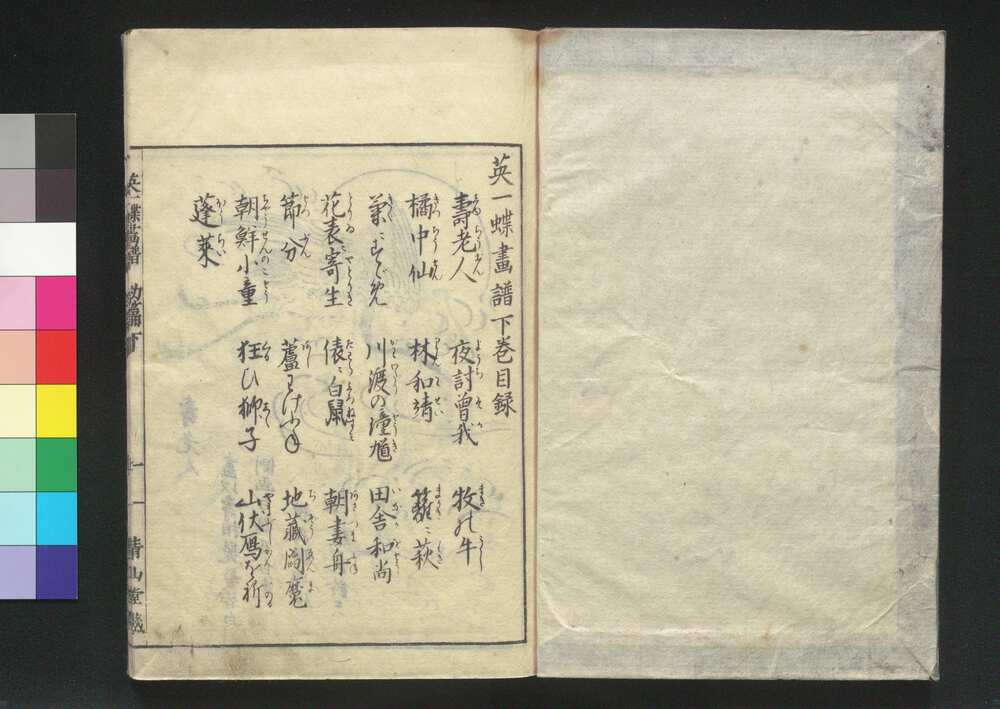 英一蝶畫譜下巻目録
壽老人 夜討曽我 牧の牛
橘中仙 林和靖 籬ニ萩
菊ニすゞめ 川渡の鍾馗 田舎和尚
花表寄生 俵ニ白鼠 朝妻舟
節分 蘆 地蔵閻魔
朝鮮小童 狂ひ獅子 山伏鴈を祈
蓬莱
英一蝶畫譜 初篇下 一 青山堂蔵